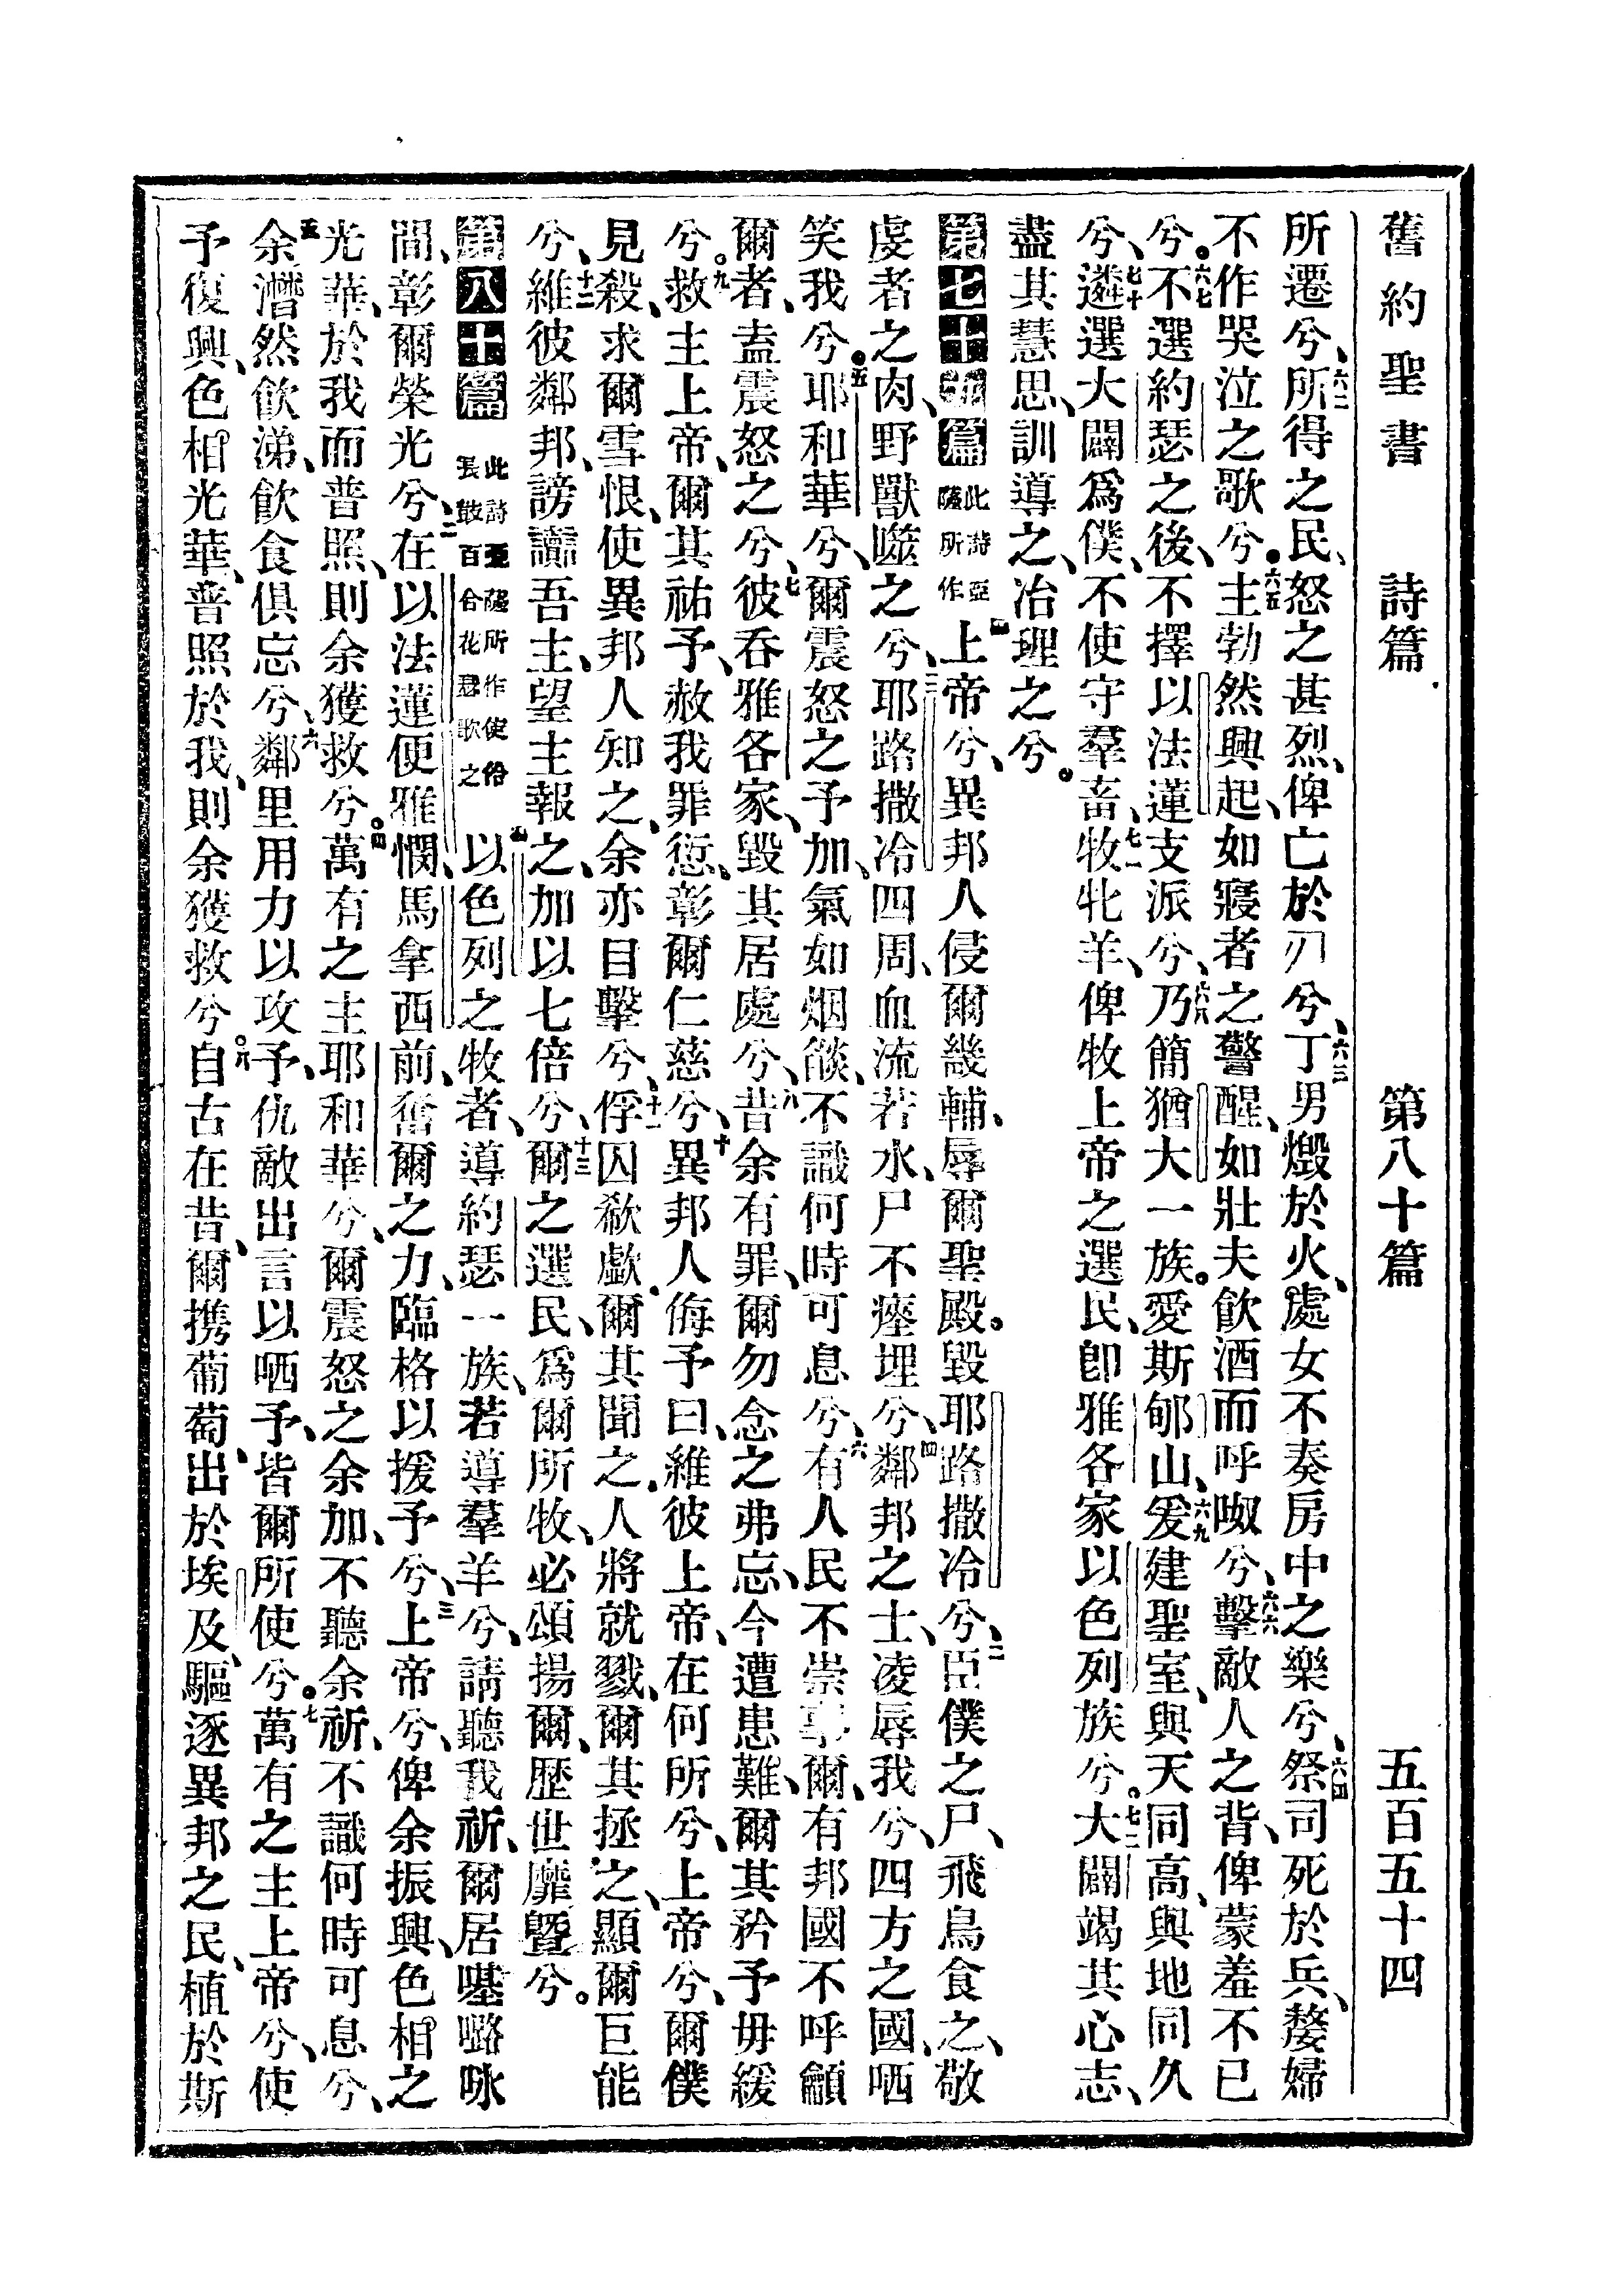 舊約聖書 詩篇 第八十篇 五百五十四
所遷兮、六二所得之民、怒之甚烈、俾亡於刃兮、六三丁男燬於火、處女不奏房中之樂兮、六四祭司死於兵、嫠婦
不作哭泣之歌兮。六五主勃然興起、如寢者之警醒、如壯夫飲酒而呼呶兮、六六擊敵人之背、俾蒙羞不已
兮。六七不選約瑟之後、不擇以法蓮支派兮、六八乃簡猶大一族。愛斯郇山、六九爰建聖室、與天同高、與地同久
兮、七十遴選大闢爲僕、不使守羣畜、七一牧牝羊、俾牧上帝之選民、卽雅各家以色列族兮。七二大闢竭其心志、
盡其慧思、訓導之、治理之兮。
第七十九篇 此詩亞薩所作 上帝兮、異邦人侵爾畿輔、辱爾聖殿。毀耶路撒冷兮、二臣僕之尸、飛鳥食之、敬
虔者之肉、野獸噬之兮、三耶路撒冷四周、血流若水、尸不瘞埋兮、四鄰邦之士、凌辱我兮、四方之國、哂
笑我兮。五耶和華兮、爾震怒之予加、氣如烟燄、不識何時可息兮、六有人民不崇事爾、有邦國不呼籲
爾者、盍震怒之兮、七彼吞雅各家、毀其居處兮、八昔余有罪、爾勿念之弗忘、今遭患難、爾其矜予毋緩
兮。九救主上帝、爾其祐予、赦我罪愆、彰爾仁慈兮、十異邦人侮予曰、維彼上帝、在何所兮、上帝兮、爾僕
見殺、求爾雪恨、使異邦人知之、余亦目擊兮、十一俘囚欷歔、爾其聞之、人將就戮、爾其拯之、顯爾巨能
兮、十二維彼鄰邦、謗讟吾主、望主報之、加以七倍兮、十三爾之選民、爲爾所牧、必頌揚爾、歷世靡曁兮。
第八十篇 此詩亞薩所作使伶長鼓百合花瑟歌之 以色列之牧者、導約瑟一族、若導羣羊兮、請聽我祈、爾居𠼻嚧㖠
間、彰爾榮光兮、二在以法蓮便雅憫、馬拿西前、奮爾之力、臨格以援予兮、三上帝兮、俾余振興、色相之
光華、於我而普照、則余獲救兮。四萬有之主耶和華兮、爾震怒之余加、不聽余祈、不識何時可息兮、
五余潸然飲涕、飲食俱忘兮、六鄰里用力以攻予、仇敵出言以哂予、皆爾所使兮。七萬有之主上帝兮、使
予復興、色相光華、普照於我、則余獲救兮。八自古在昔、爾携葡萄、出於埃及、驅逐異邦之民、植於斯